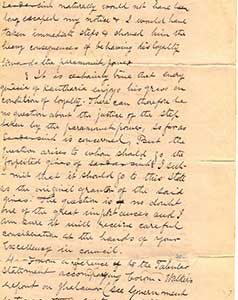 naturally would not have been
long escaped my notice & I would have
taken immediate steps & should him the
heavy consequences of behaving his loyalty
towards the paramount power
3 It is certainly true that every
of enjoys his gras on
condition of loyalty. There can therefore be
no question about the justice of the step
taken by the paramount power, so far as
is concerned. But the
question arises to whom should go the
forfeited giras of I sub-
-mit that it should go to this State
as the original grantor of the said
giras. The question is no doubt
one of the great importances and I
am sure it will receive careful
consideration at the hands of your
Excellency in council.
4. From a reference to the Tabular
Statement accompanying Walker's
report on (see Government